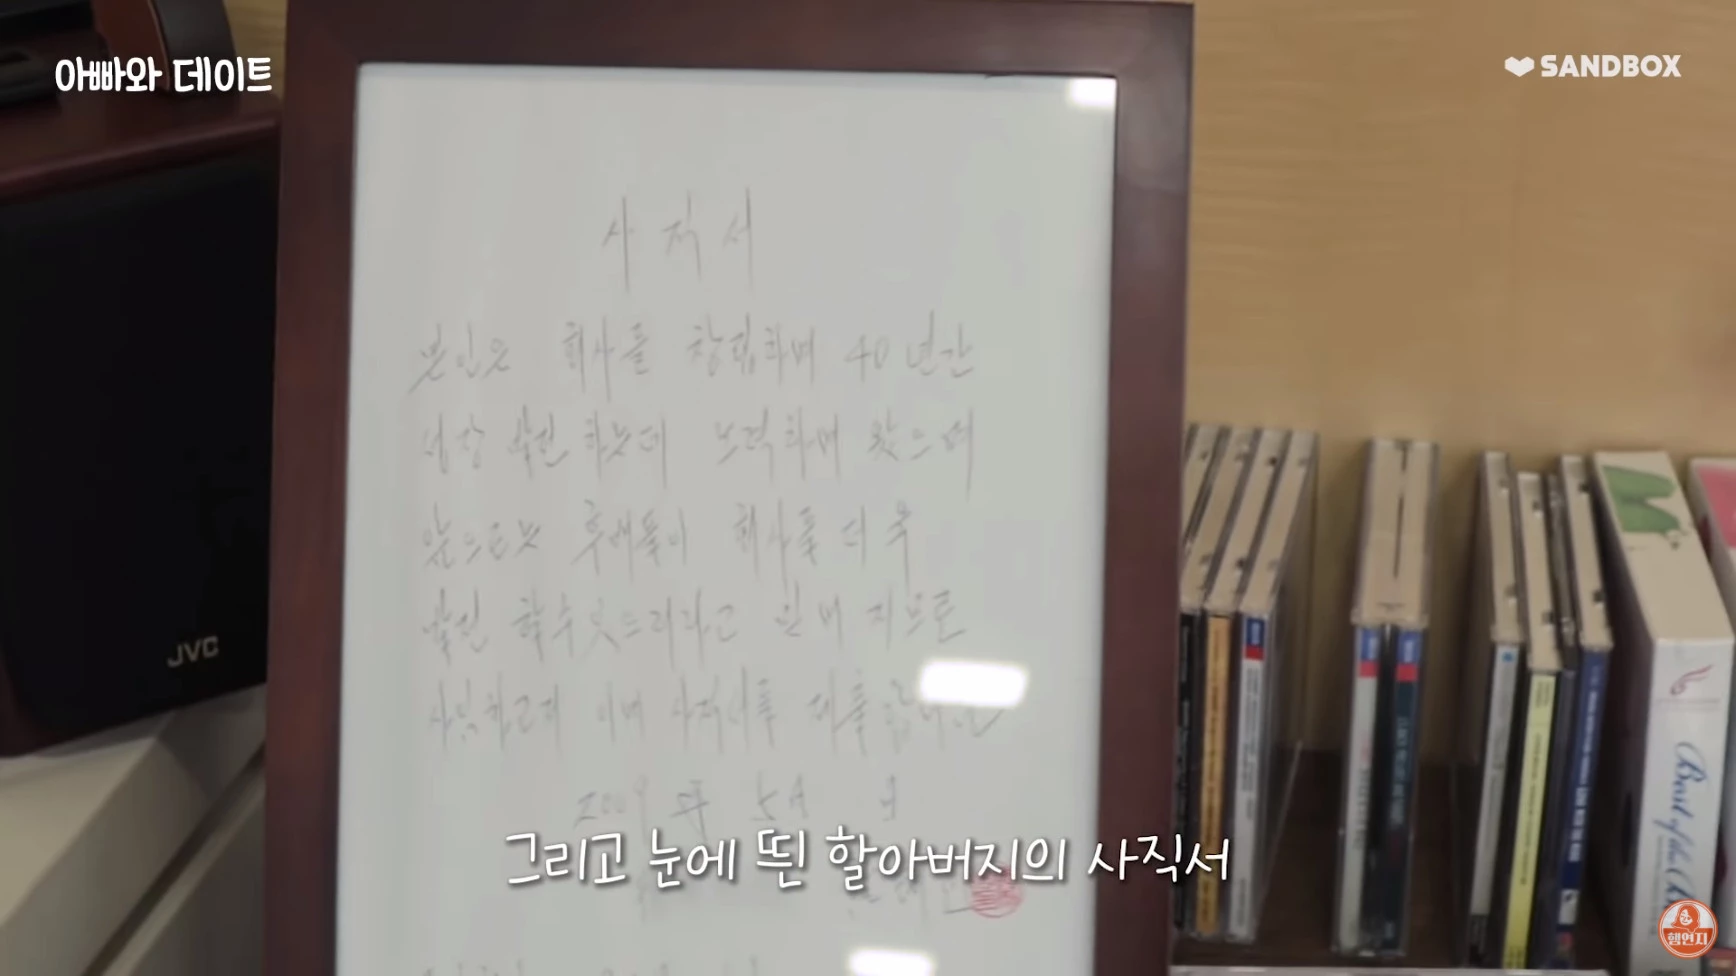 아빠와 데이트
SANDBOX
사직서
본인은 회사를 창립하며 40년간
성장 발전하는데 노력하며 왔으며
앞으로는 후배들이 회사를 더욱
발전 할수있으리라고
사임하고저 이에 사직서를 제출합니다
2009年 5月 日
그리고 눈에 띈 할아버지의 사직서
JVC
Best of the
햄연지